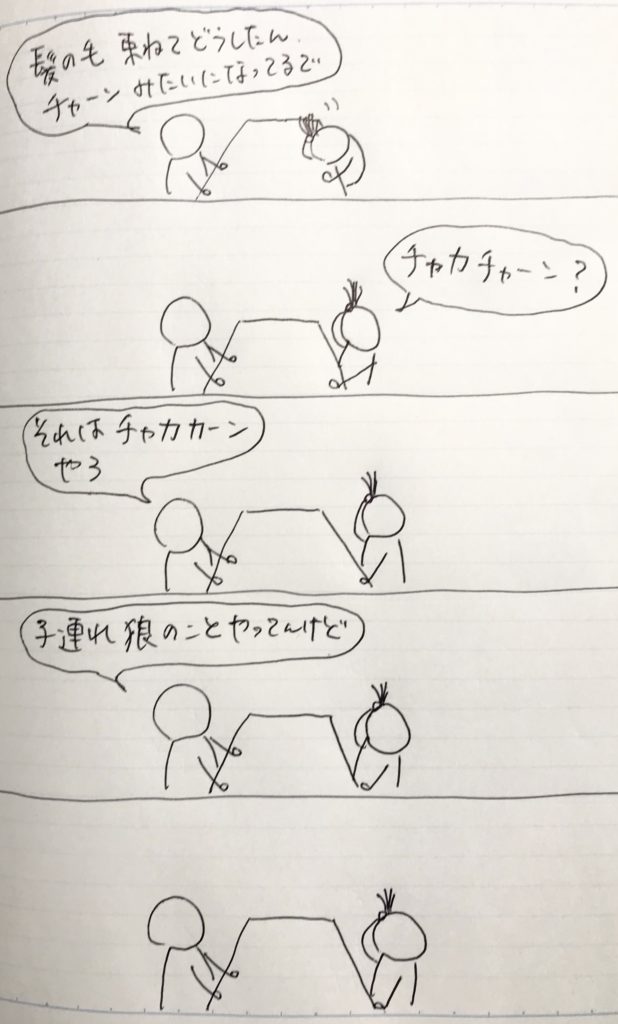 髪の毛 束ねてどうしたん
チャーン みたいになってるで
チャカチャーン?
それは チャカカーン
やろ
子連れ狼のこと やってんけど